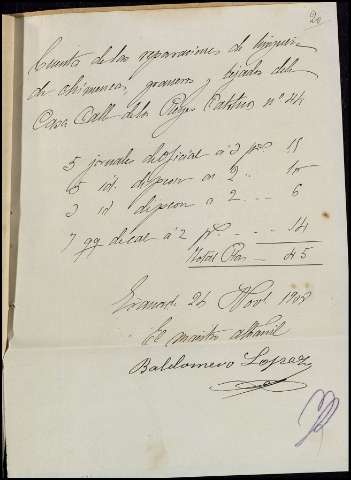 Cuenta de las reparaciones de limpieza
de chimenea, graneros y tejados de la
Casa Calle de los Reyes Católicos nº 44
5 jornales de oficial a 3 pts 15
5 id. de peon a 2 .. 10
3 id de peon a 2 - - - 6
7 qq de cal a 2 pts - - - 14
Total Ptas - 45
26 Novb
El maestro albañil
Baldomero Lopez